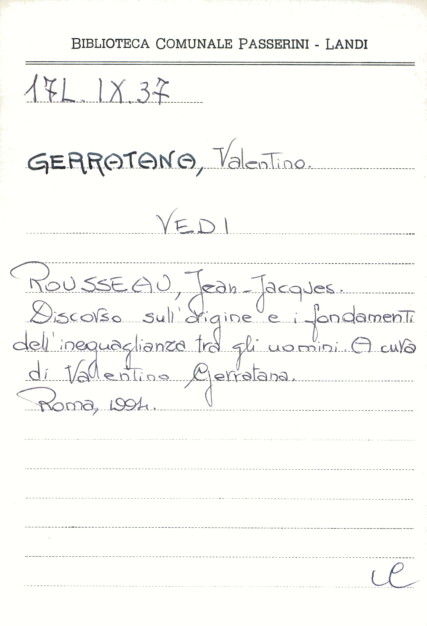 BIBLIOTECA COMUNALE PASSERINI - LANDI
17L. IX. 37
GERRATANA, Valentino.
VEDI
ROUSSEAU, Jean-Jacques.
Discorso sull'origine e i fondamenti
dell'ineguaglianza tra gli uomini. A cura
di Valentino Gerratana.
Roma, 1994.